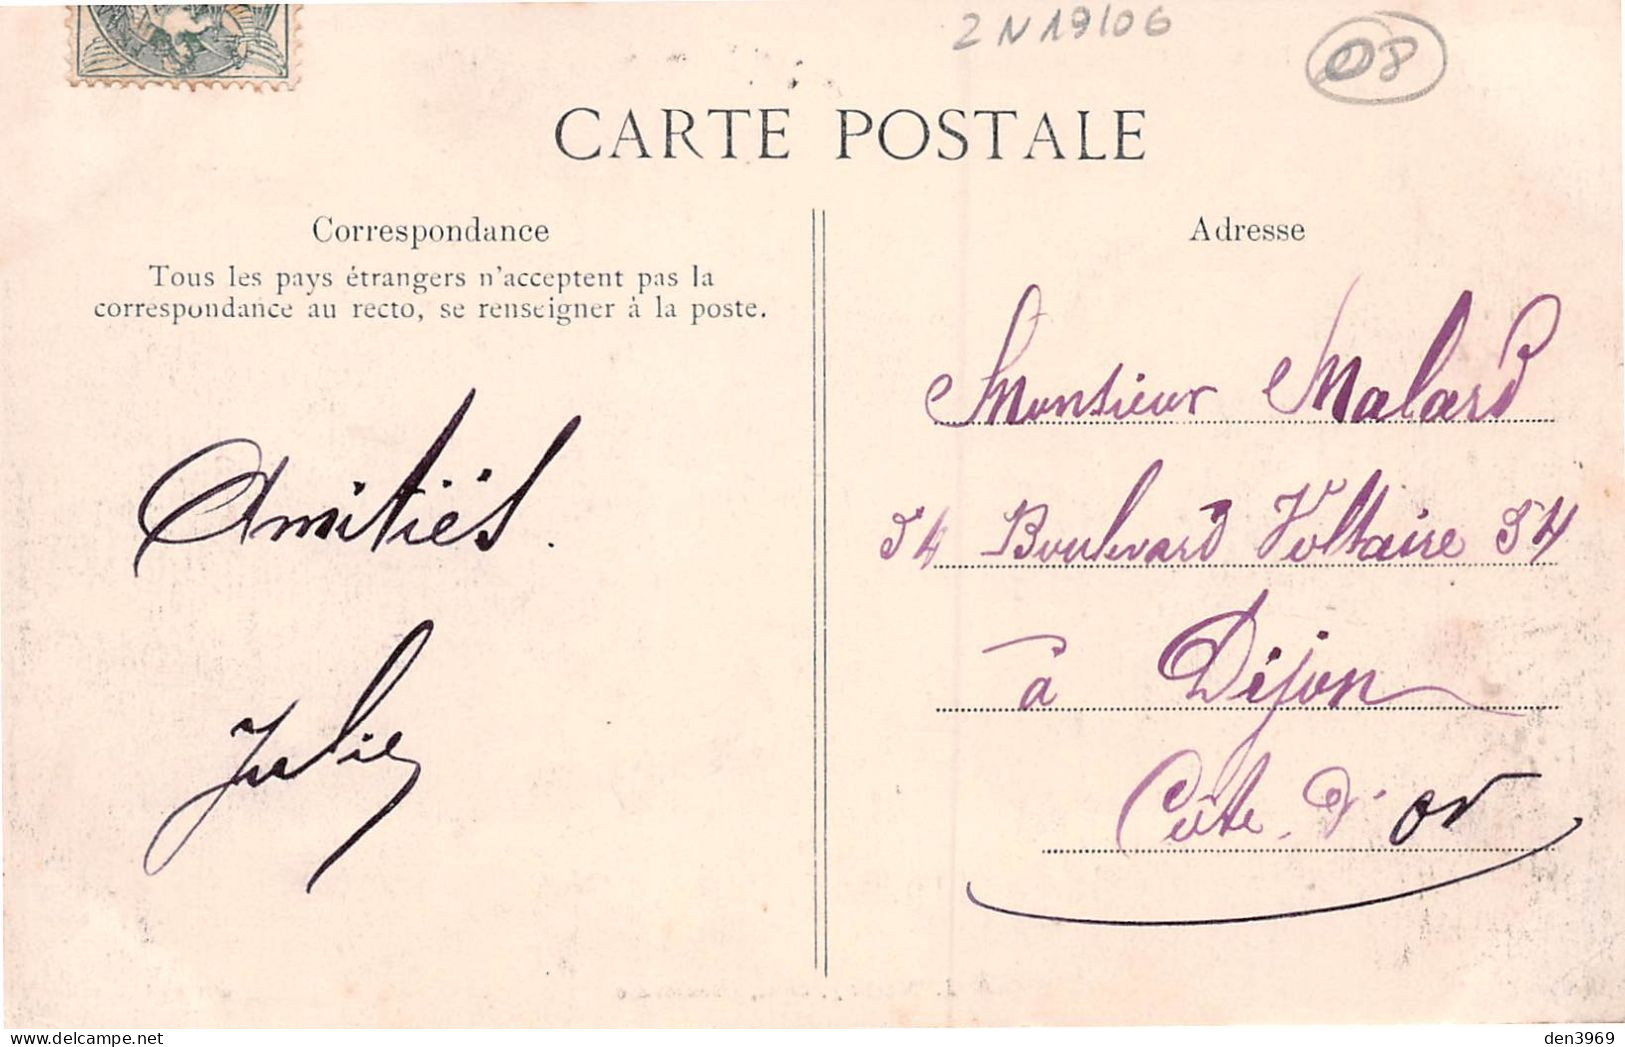 2N19/06
08
CARTE POSTALE
Correspondance
Tous les pays étrangers n'acceptent pas la
correspondance au recto, se renseigner à la poste.
Amitiés.
Julie
Adresse
Monsieur Malard
54 Boulevard Voltaire 54
à Dijon
Côte d'or
den3969